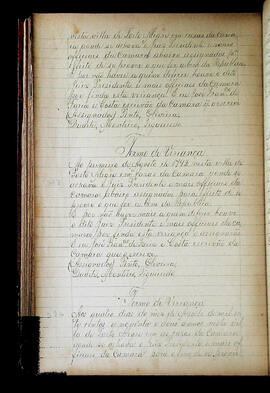 nesta villa de Porto Alegre em casas da Cama
ra onde se achava o Juiz Presidente e mais
officiaes da Camara abaixo assignados para
effeito de se prover o que for a bem da Republica
e por não haver a quem deferir houve o dito
Juiz Presidente e mais officiaes da Camara
por finda esta vereança e eu João
Faria e Costa escrivão da Camara o escrevi
(Assignados) Pinto, Oliveira,
Monteiro,
Termo de Vereança
Ao primeiro de Agosto de 1792 nesta villa de
Porto Alegre em Casas da Camara onde se
achava o Juiz Presidente e mais officiaes da
Camara abaixo assignados para effeito de se
prover o que for a bem da Republica
E por não haver mais a quem deferir houve
o dito Juiz Presidente e mais officiaes da Ca
mara por finda esta vereança e assignarão
e eu João de Faria e Costa escrivão da
Camara que escrevi
(Assignados) Pinto, Oliveira,
Monteiro,
Termo de Vereança
Aos quatro dias do mez de Agosto de mil se
te centos e noventa e dous annos nesta vil
la de Porto Alegre em as casas da Camara
onde se achava o Juiz Presidente e mais of
ficiaes da Camara para effeito de se prover